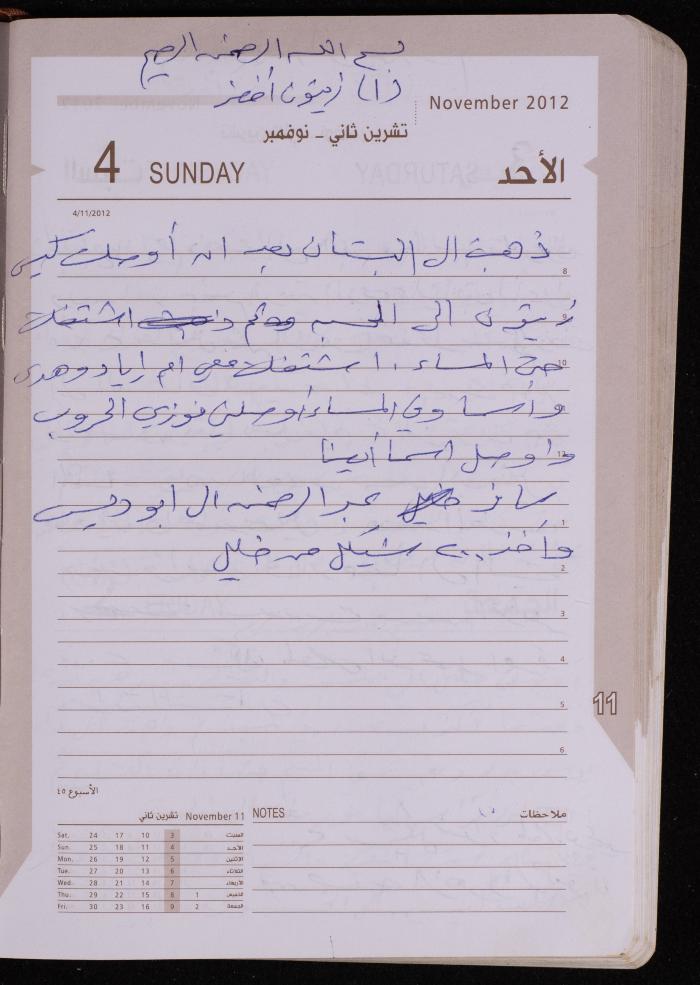 بسم الله الرحمن الرحيم
زيتون أخضر
November 2012
تشرين ثاني - نوفمبر
4 SUNDAY الأحد
4/11/2012
ذهبة ال البستان بعد ان أوصلت كيس
8
زيتون الى الحسبه اشتغلت
9
حتى المساء . اشتغلت معي ام اياد وهدى
10
واسما وفي المساء أوصلني فوزي الخروب
واوصل اسما أيضا
12
سافر عبد الرحمن ال ابو ديس
1
وأخذ ٢٠٠ شيكل من خليل
2
3
4
5
6
11
الأسبوع ٤٥
تشرين ثاني November 11
Sat. 24 17 10 3 السبت
Sun. 25 18 11 4 الأحد
Mon. 26 19 12 5 الاثنين
Tue. 27 20 13 6 الثلاثاء
Wed. 28 21 14 7 الأربعاء
Thu. 29 22 15 8 1 الخميس
Fri. 30 23 16 9 2 الجمعة
NOTES ملاحظات